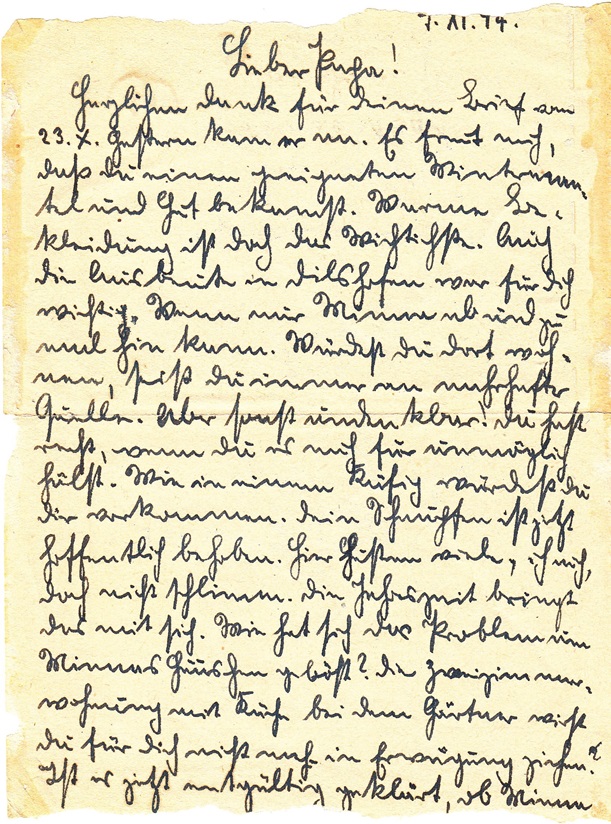 7. XI. 74.
Lieber Papa!
Herzlichen Dank für deinen Brief vom
23. X. Gestern kam er an. Es freut mich,
daß du einen geeigneten Winterman-
tel und Hut bekamst. Warme Be-
kleidung ist doch das Wichtichste. Auch
die Ausbeute in Dilshofen war für dich
wichtig. Wenn nur Minna ab und zu
mal hin kann. Würdest du dort woh-
nen, säßt du immer an nahrhafter
Quelle. Aber sonst undenkbar! Du hast
recht, wenn du es auch für unmöglich
hälst. Wie in einem Käfig würdest du
dir vorkommen. Dein Schnupfen ist jetzt
hoffentlich behoben. Hier husten viele, ich auch,
doch nicht schlimm. Die Jahreszeit bringt
das mit sich. Wie hat sich das Problem um
Minnas Häuschen gelöst? Die Zweizimmer-
wohnung mit Küche bei dem Gärtner willst
du für dich nicht auch in Erwägung ziehen?
Ist es jetzt entgültig geklärt, ob Minna